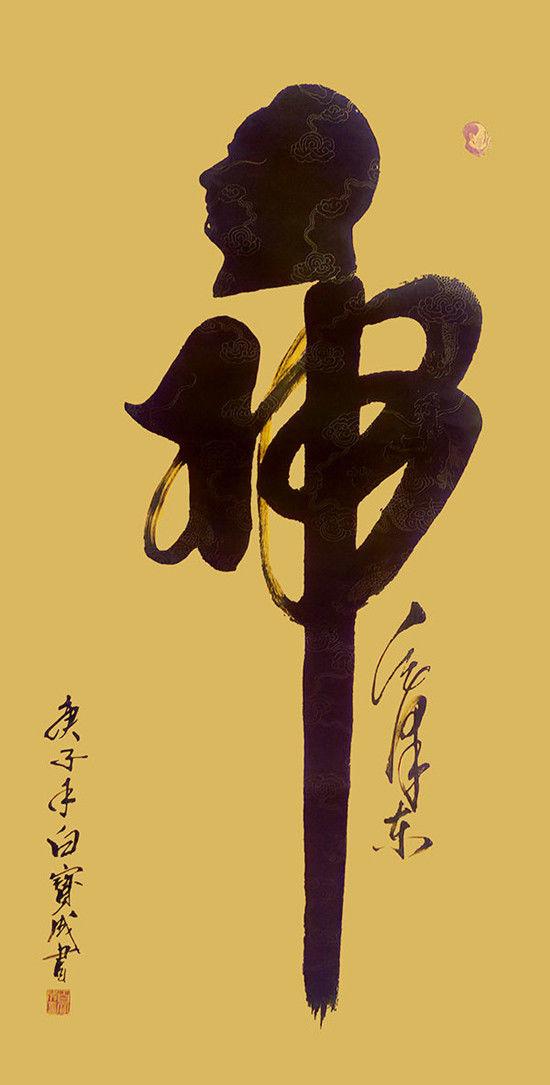 神
毛泽东
庚子年白寶成書